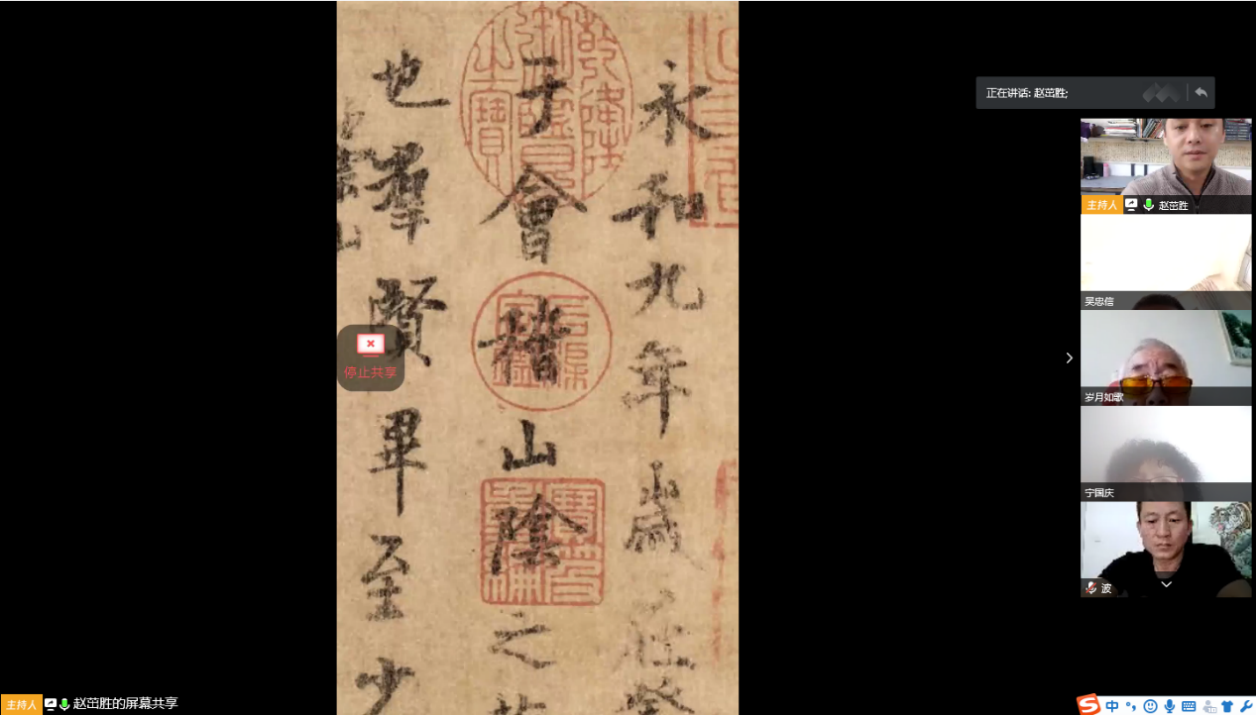 永和九年歲在癸
于會稽山陰之
也羣賢畢至少
乾隆御覽之寶
石渠寶鑑
停止共享
正在讲话: 赵茁胜;
主持人 赵茁胜
吴忠信
岁月如歌
宁国庆
波
主持人 赵茁胜的屏幕共享
中